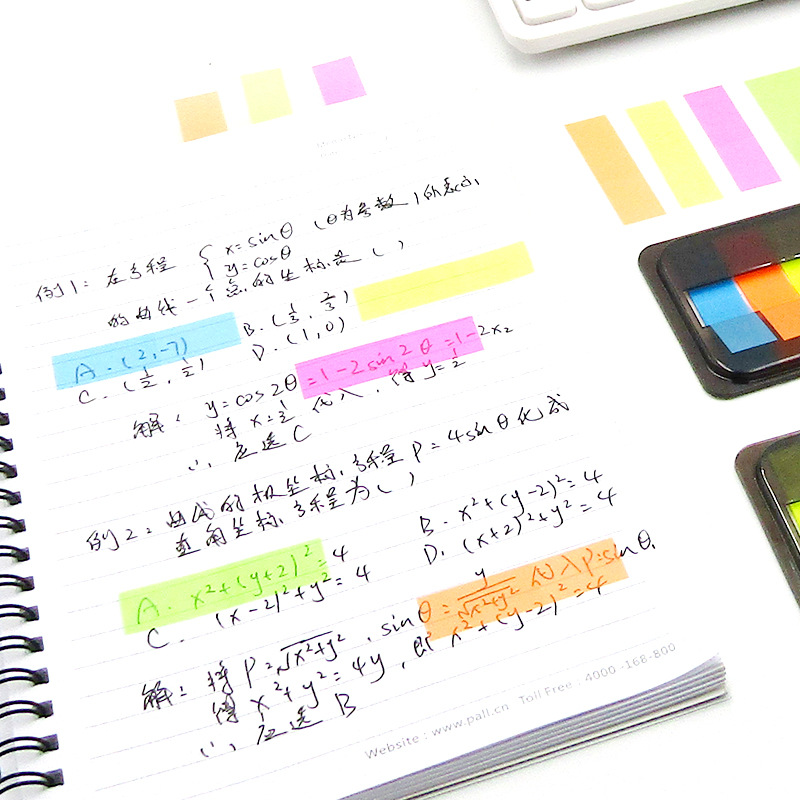 例1：在方程 { x=sinθ y=cosθ (θ为参数)所表示
的曲线一个点的坐标是( )
A.(2,-7) B.(1/3, 2/3)
C.(1/2, 1/2) D.(1,0)
解： y=cos2θ=1-2sin2θ=1-2x2
将 x=1/2 代入，得 y=1/2
∴ 应选 C
例2：曲线的极坐标方程 P=4sinθ 化成
直角坐标方程为( )
A. x²+(y+2)²=4 B. x²+(y-2)²=4
C. (x-2)²+y²=4 D. (x+2)²+y²=4
解：将 P=√x²+y², sinθ=y/√x²+y² 代入 P=sinθ,
得 x²+y²=4y, 即 x²+(y-2)²=4
∴ 应选 B
Website : www.pall.cn Toll Free : 4000 -168-800